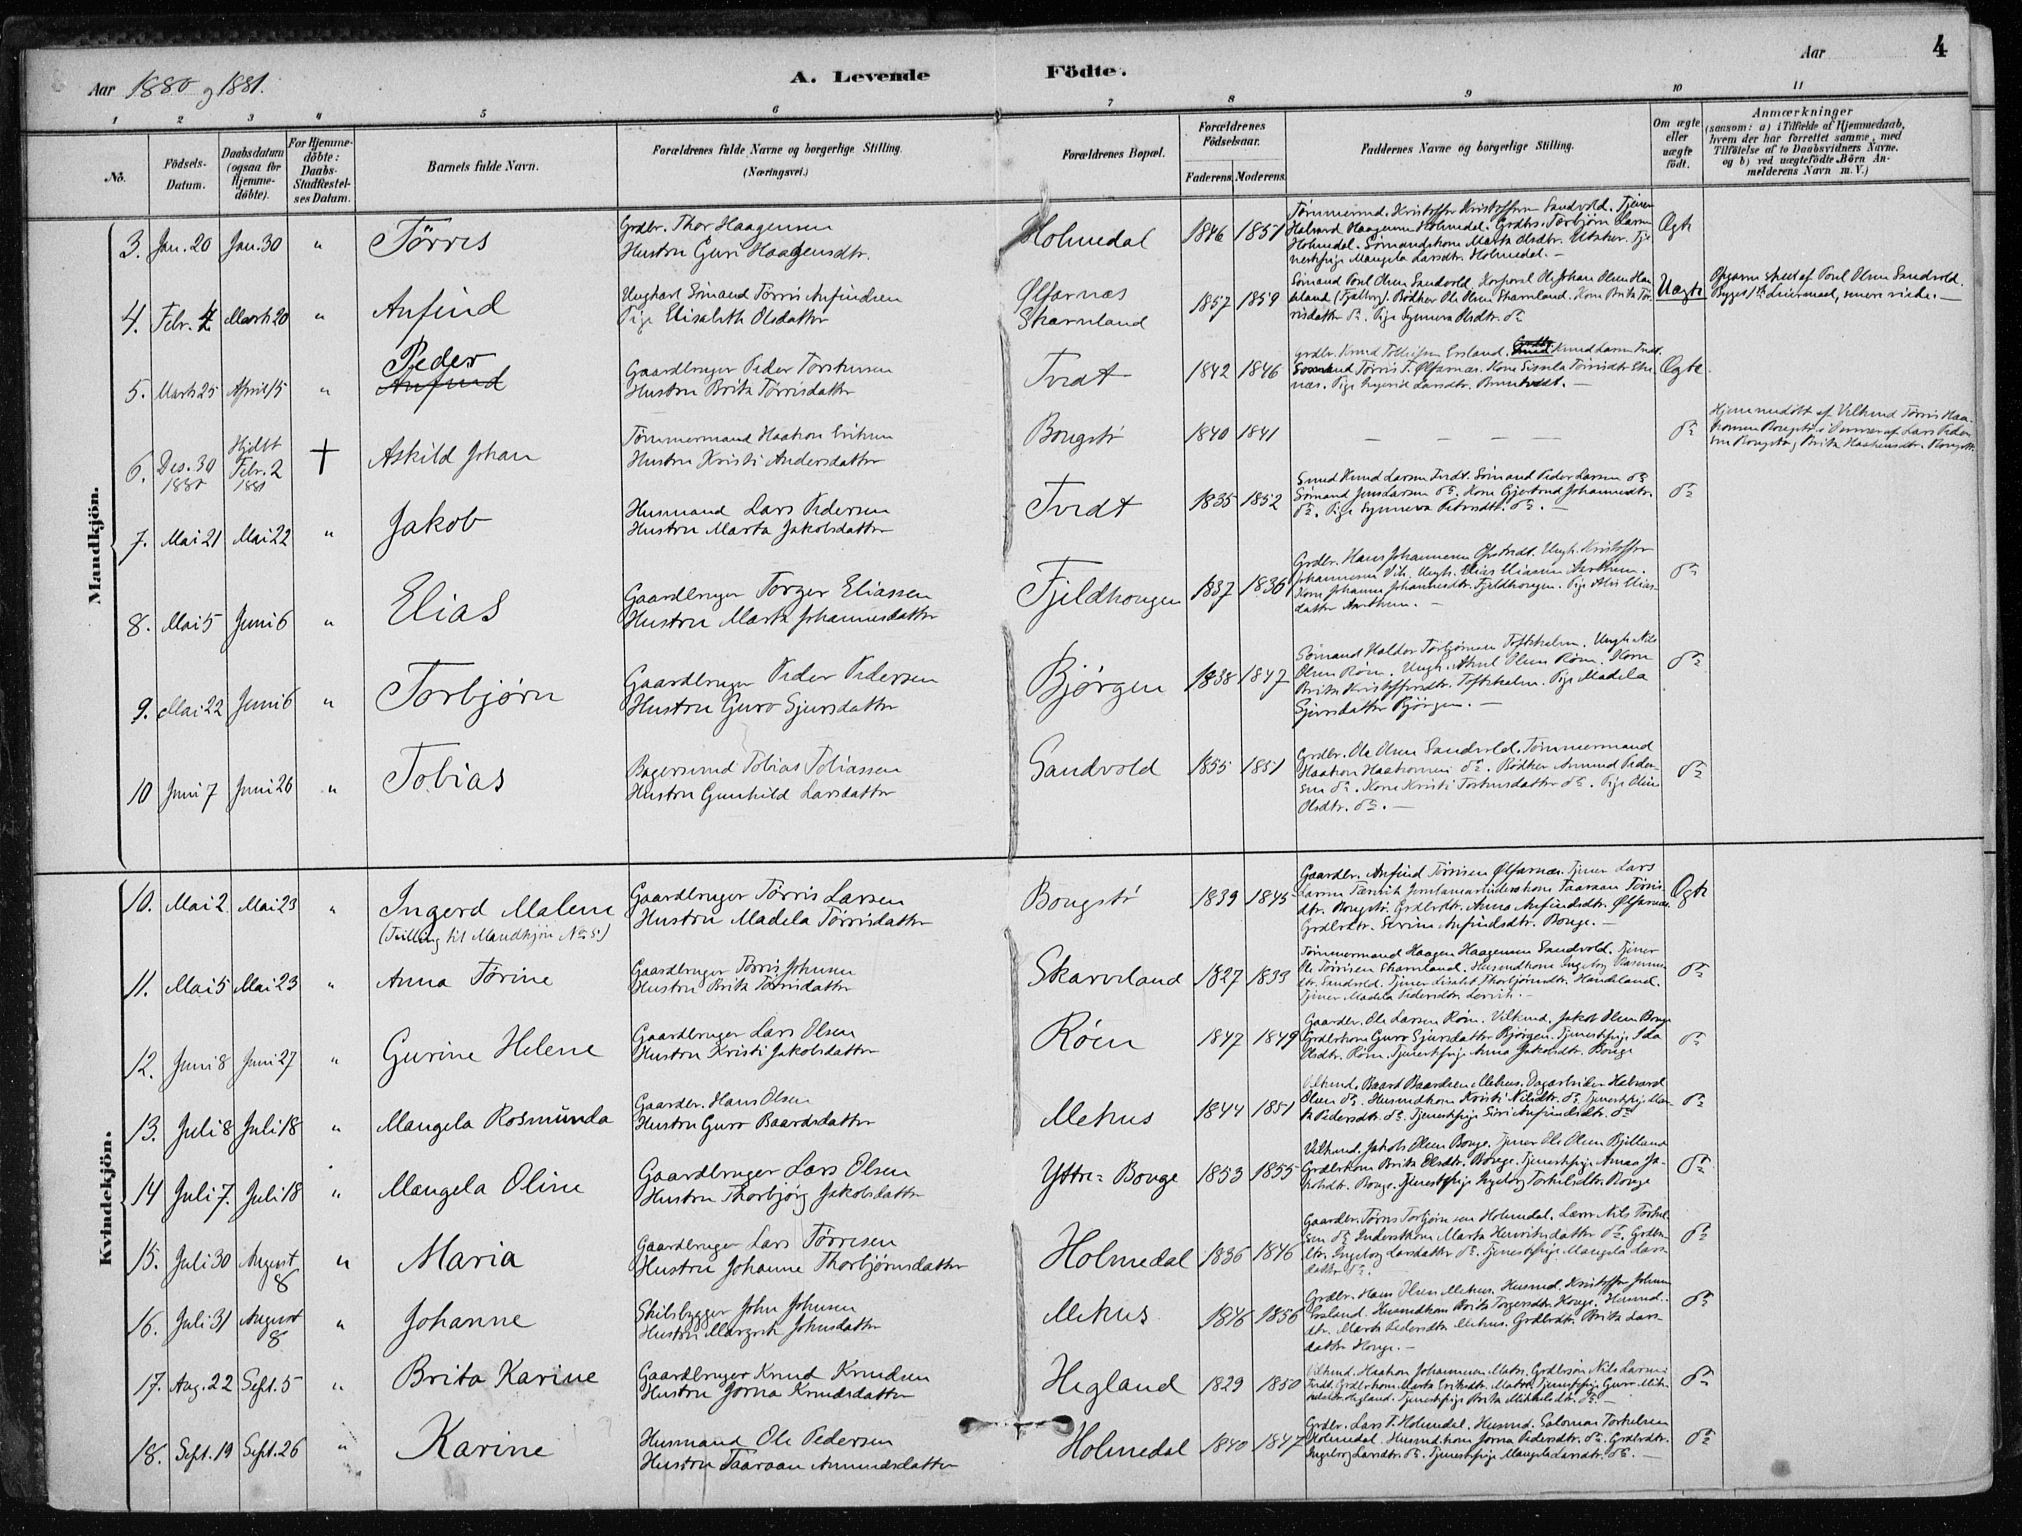 Aar 1880 og 1881.
A. Levende Födte.
Aar
4
1 2 3 4 5 6 7 8 9 10 11
No.
Födsels-Datum.
Daabsdatum (ogsaa for Hjemme-döbte).
For Hjemme-döbte: Daabs-Stadfæstel-ses Datum.
Barnets fulde Navn.
Forældrenes fulde Navne og borgerlige Stilling. (Næringsvei.)
Forældrenes Bopæl.
Forældrenes Födselsaar.
Faderens. Moderens.
Faddernes Navne og borgerlige Stilling.
Om ægte eller uægte födt.
Anmærkninger
(saasom: a) i Tilfælde af Hjemmedaab,
hvem der har forrettet samme, med
Tilföielse af to Daabsvidners Navne,
og b) ved uægtefödte Börn An-
melderens Navn m. V.)
Mandkjön.
3. Jan. 20 Jan. 30 " Tørris
Grdbr. Thor Haagensen
Hustru Guri Haagensdtr.
Holmedal 1846 1851
Tømmermd. Kristoffer Kristoffersen Sandvold. Tjener
Halvard Haagensen Holmedal. Grdbrs. Torbjørn Larsen
Holmedal. Sømandskone Marta Olsdtr. Utaaker. Tje
nestepige Mangela Larsdtr. Holmedal. —
Ægte
4. Febr. 4 Marts 20 " Anfind
Ungkarl Sömand Tørris Anfindsen
Pige Elisabeth Olsdatter
Ølfarnæs
Skarveland
1857 1859
Sömand Poul Olsen Sandvold, Korporal Ole Johan Olsen Hau
keland (Fjelberg). Bödker Ole Olsen Skarveland. Kone Brita Tør
risdatter do. Pige Synneva Olsdtr. do
Uægte
Opgave skreet af Poul Olsen Sandvold.
5. Marts 25 April 15 " Peder
Anfind
Gaardbruger Peder Torstensen
Hustru Brita Tørrisdatter
Tvedt 1842 1846
Grdbr. Knud Tollefsen Ersland. Knud Larsen Tvedt.
Sømand Tørris T. Ølfarnæs. Kone Sissela Tørrisdtr
næs. Pige Ingerid Larsdtr. —
Ægte
6. Des. 30 1880 Hjdbt Febr. 2 1881 + Askild Johan
Tømmermand Haakon Eriksen
Hustru Kristi Andersdatter
Bongstø 1840 1841 — — — — do
Hjemmedöbt af Velkmd Tørris Haa-
7. Mai 21 Mai 22 " Jakob
Husmand Lars Pedersen
Hustru Marta Jakobsdatter
Tvedt 1835 1852
Smed Knud Larsen Tvedt. Sömand Peder Larsen do
Sömand Jens Larsen do. Kone Gjertrud Johannesdtr.
do. Pige Synneva Petersdtr. do. —
do
8. Mai 5 Juni 6 " Elias
Gaardbruger Torger Eliassen
Hustru Marta Johannesdatter
Fjeldhougen 1837 1836
Grdbr. Hans Johannesen Øfstvedt. Ungk. Kristoffer
Johannesen Vik. Ungk. Elias Eliassen Aarthun.
Kone Johanne Johannesdtr. Fjeldhougen. Pige Alis Elias-
datter Aarthun. —
do
9. Mai 22 Juni 6 " Torbjørn
Gaardbruger Peder Pedersen
Hustru Guro Sjursdatter
Bjørgen 1838 1847
Sömand Haldor Torbjørnsen Toftekalven. Ungk. Nils
Olsen Røen. Ungk. Aksel Olsen Røen. Kone
Brita Kristoffersdtr. Toftekalven. Pige Madela
Sjursdatter Bjørgen. —
do
10 Juni 7 Juni 26 " Tobias
Bagersvend Tobias Tobiassen
Hustru Gunhild Larsdatter
Sandvold 1855 1851
Grdbr. Ole Olsen Sandvold. Tømmermand
Haakon Haakonsen do. Bödker Amund Peder-
sen do. Kone Kristi Torstensdatter do. Pige Eline
Olsdtr. do. —
do
Kvindekjön.
10. Mai 2 Mai 23 " Ingerd Malene
(Tvilling til Mandkjøn No 5.)
Gaardbruger Tørris Larsen
Hustru Madela Tørrisdatter
Bongstø 1839 1845
Gaardbr. Anfind Tørrisen Ølfarnæs. Tjener Lars
Larsen Tærvik. Jernbanearbeiderskone Taaraan Tørris-
dtr. Bongstø. Grdbrdtr. Anna Anfindsdtr. Ølfarnæs.
Grdbrdtr. Serine Anfindsdtr. Bouge. —
Ægte
11. Mai 5 Mai 23 " Anna Tørine
Gaardbruger Tørris Johnsen
Hustru Brita Tørrisdatter
Skarveland 1827 1833
Tømmermand Haagen Haagensen Sandvold. Tjener
Ole Tørrisen Skarveland. Husmdkone Ingeborg Rasmus-
dtr. Sandvold. Tjener Lisabet Thorbjørnsdtr. Haukeland.
Tjener Madela Pedersdtr. —
do
12. Juni 8 Juni 27 " Gurine Helene
Gaardbruger Lars Olsen
Hustru Kristi Jakobsdatter
Røen 1847 1849
Gaardbr. Ole Larsen Røen. Velkmd. Jakob Olsen Bouge
Grdbrkone Guro Sjursdatter Bjørgen. Tjenestepige Ida
Olsdtr. Røen. Tjenestepige Anna Jakobsdtr. Bouge
do
13. Juli 8 Juli 18 " Mangela Rosmunda
Gaardbr. Hans Olsen
Hustru Guro Baardsdatter
Mehus 1844 1851
Velkmd. Baard Baardsen Mehus. Dagarbeider Halvard
Olsen do. Husmdkone Kristi Nilsdtr. do. Tjenestepige Mar-
ta Pedersdtr. do. Tjenestepige Siri Anfindsdtr. do
do
14 Juli 7. Juli 18 " Mangela Oline
Gaardbruger Lars Olsen
Hustru Thorbjørg Jakobsdatter
Yttre-Bouge 1853 1855
Velkmd. Jakob Olsen Bouge. Tjener Ole Olsen Bjelland
Grdbrkone Brita Olsdtr. Bouge. Tjenestepige Anna Ja-
kobsdtr. Bouge. Tjenestepige Ingeborg Torkelsdtr. Bouge
do
15. Juli 30 August 8 " Maria
Gaardbruger Lars Tørresen
Hustru Johanne Thorbjørnsdatter
Holmedal 1836 1846
Gaardbr. Tørris Torbjørnsen Holmedal. Lærer Nils Torkel-
sen do. Inderstkone Marta Henriksdatter do. Grdbr-
dtr. Ingeborg Larsdatter do. Tjenestepige Mangela Lars-
datter do.
do
16. Juli 31 August 8 " Johanne
Skibsbygger John Johnsen
Hustru Margrete Johnsdatter
Mehus 1846 1856
Grdbr. Hans Olsen Mehus. Husmd. Kristoffer Johnsen
Ersland. Husmdkone Brita Torgersdtr. Houge. Husmd-
dtr. Marta Pedersdtr. Mehus. Grdbrdtr. Brita Lars-
datter Houge. —
do
17. Aug. 22 Sept. 5 " Brita Karine
Gaardbruger Knud Knudsen
Hustru Jorna Knudsdatter
Hegland 1829 1850
Velkmd. Haakon Johannesen Matre. Grdbrsøn Nils Larsen
Tvedt. Grdbrkone Marta Eriksdtr. Matre. Tjenestepige Guro Mik-
kelsdtr. Hegland. Tjenestepige Brita Mikkelsdtr. do. —
do
18. Sept. 19 Sept. 26 " Karine
Husmand Ole Pedersen
Hustru Taaraan Amundsdatter
Holmedal 1840 1847
Grdbr. Lars T. Holmedal. Husmd. Salomon Torkelsen
Holmedal. Husmdkone Jorna Pedersdtr. do. Grdbrdtr.
Ingeborg Larsdtr. do. Tjenestepige Mangela Larsdtr. do. —
do